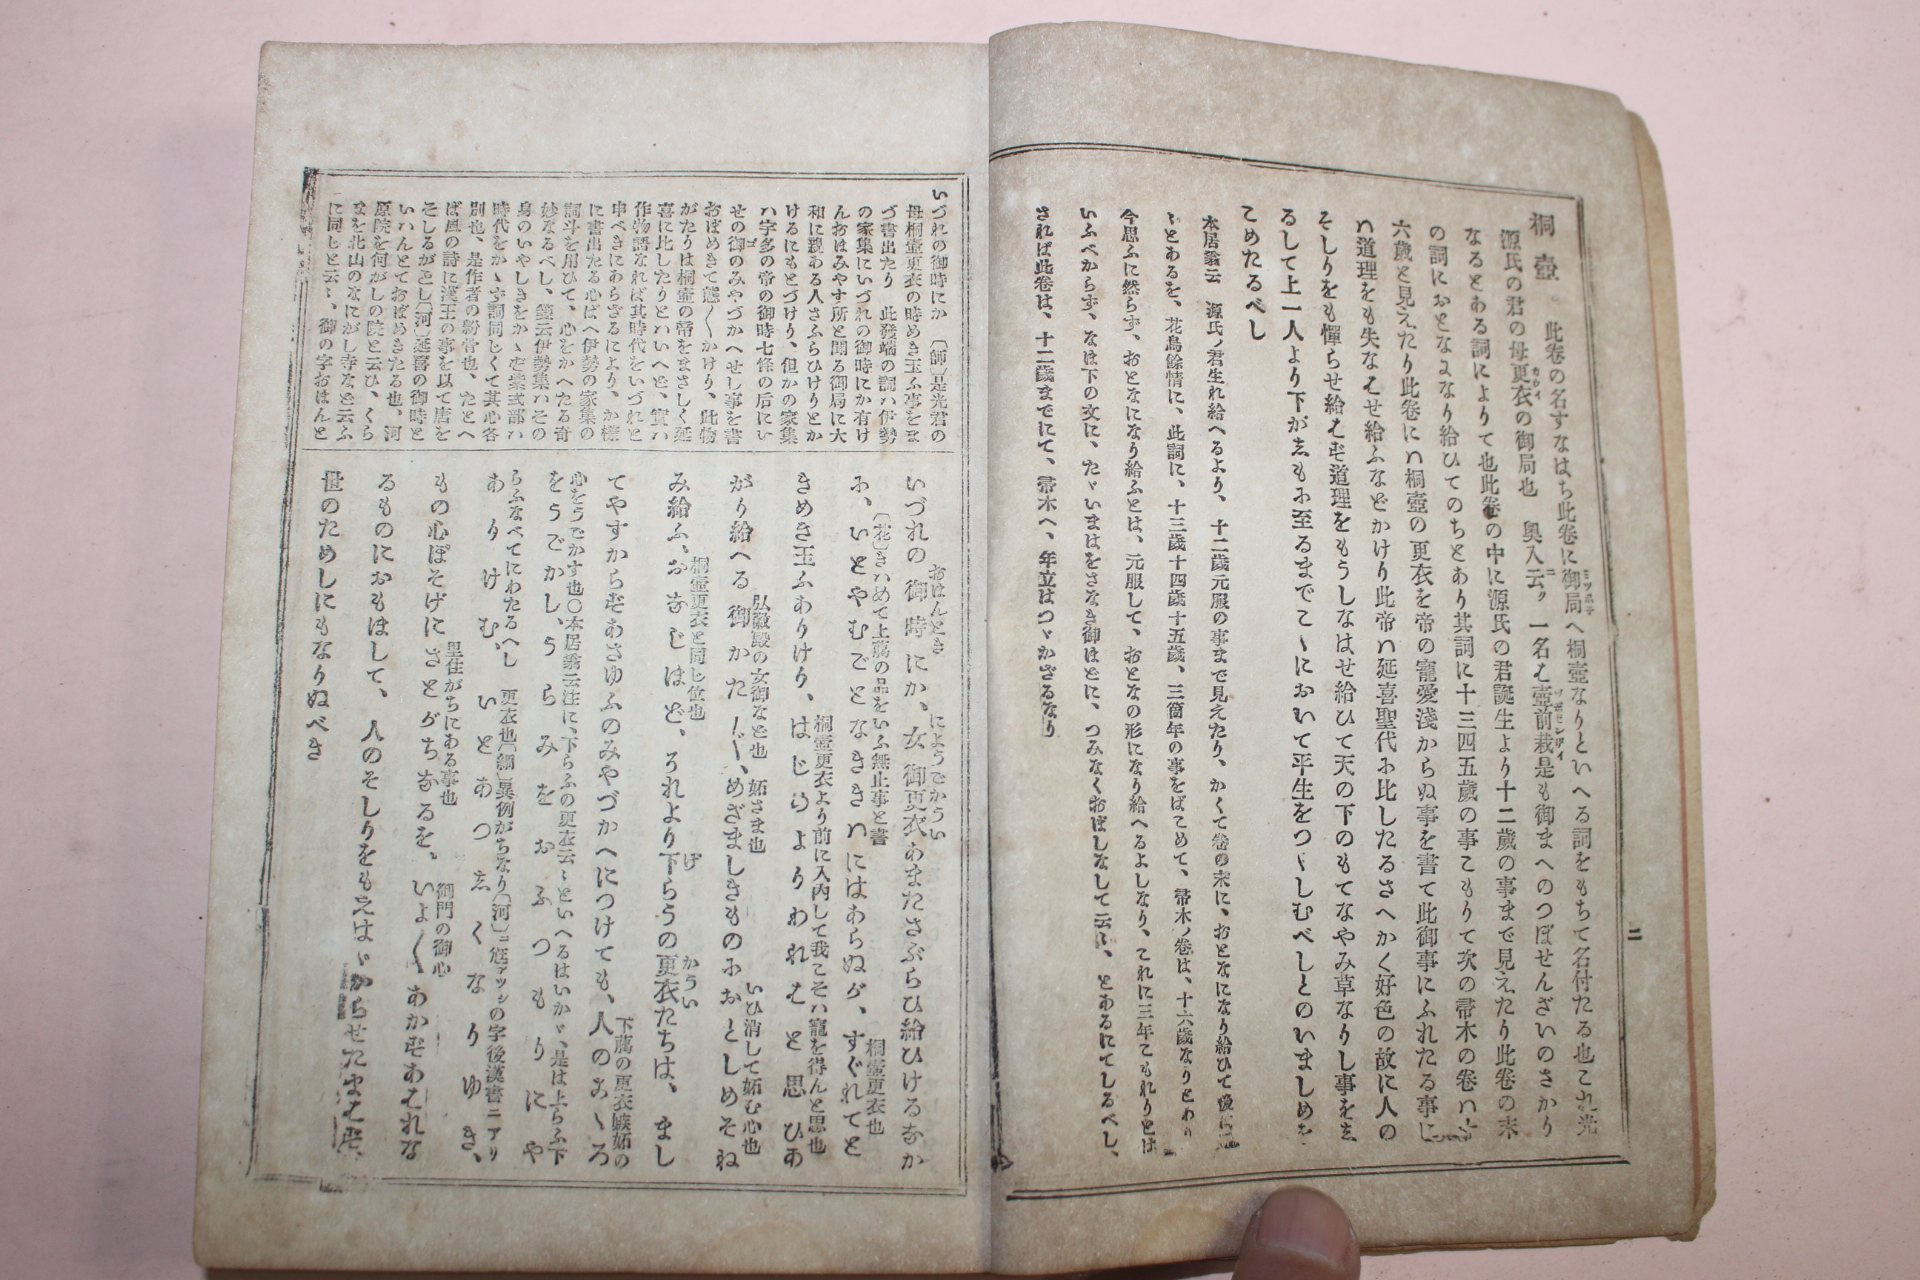 桐壺　此卷の名すなはち此卷に御局ヘ桐壺なりといへる詞をもちて名付たる也これ光
源氏の君の母更衣の御局也　奥入云ク一名む壺前栽是も御まへのつぼせんざいのさかり
なるとある詞によりて也此卷の中に源氏の君誕生より十二歲の事まで見えたり此卷の末
の詞におとなになり給ひてのちとあり其詞に十三四五歲の事こもりて次の帚木の卷ハ十
六歲と見えたり此卷にハ桐壺の更衣を帝の寵愛淺からぬ事を書て此御事にふれたる事に
ハ道理をも失なむせ給ふなどかけり此帝ハ延喜聖代に比したるさへかく好色の故に人の
そしりをも憚らせ給むず道理をもうしなはせ給ひて天の下のもてなやみ草なりし事をゑ
るして上一人より下がゑもに至るまでこゝにおいて平生をつゝしむべしとのいましめを
こめたるべし
本居翁云　源氏ノ君生れ給へるより、十二歲元服の事まで見えたり、かくて卷の末に、おとなになり給ひて後に
ゝとあるを、花鳥餘情に、此詞に、十三歲十四歲十五歲、三箇年の事をばこめて、帚木ノ卷は、十六歲なりとわり
今思ふに然らず、おとなになり給ふとは、元服して、おとなの形になり給へるよしなり、これに三年こもれりとは
いふべからず、なほ下の文に、たゞいまはをさなき御ほどに、つみなくおぼしなして云々、とあるにてしるべし、
されば此卷は、十二歲までにて、帚木へ、年立はつゞかざるなり
二
いづれの御時にか　〔師〕是光君の
母桐壺更衣の時めき玉ふ事をま
づ書出たり　此發端の詞ハ伊勢
の家集にいづれの御時にか有け
んおほみやす所と聞る御局に大
和に親ある人さふらひけりとか
けるにもとづけり、但かの家集
ハ宇多の帝の御時七條の后にい
せの御のみやづかへせし事を書
おぼめきて態〳〵かけり、此物
がたりは桐壺の帝をまさしく延
喜に比したりといへど、實ハ
作物語なれば其時代をいづれと
申べきにあらざるにより、か樣
に書出たる心ばへ伊勢の家集の
詞斗を用ひて、心をかへたる奇
妙なるべし、箋云伊勢集ハその
身のいやしきをかゝむ紫式部ハ
時代をかゝず詞同じくて其心各
別也、是作者の新骨也、たとへ
ば風の詩に漢王の事を以て唐を
そしるがごとし〔河〕延喜の御時と
いハんとておぼめきたる也、河
原院を何がしの院と云ひ、くら
まを北山のなにがし寺などと云ふ
に同じと云々、御の字おほんと
おほんとき
にようごかうい
いづれの御時にか、女御更衣あまたさぶらひ給ひけるなか
〔花〕きハめて上﨟の品をいふ無止事と書
桐壺更衣也
に、いとやむごとなききハにはあらぬが、すぐれてと
きめき玉ふありけり、はじめよりわれむと思ひあ
桐壺更衣より前に入内して我こそハ寵を得んと思也
がり給へる御かた〴〵、めざましきものにおとしめそね
弘徽殿の女御など也　妬さま也
いひ消して妬む心也
み給ふ、おなじほど、それより下らうの更衣たちは、まし
桐壺更衣と同じ位也
げ
かうい
てやすからずあさゆふのみやづかへにつけても、人のこゝろ
下﨟の更衣嫉妬の
心をうごかす也〇本居翁云注に、下らふの更衣云々といへるはいかゞ、是は上らふ下
をうごかし、うらみをおふつもりにや
らふなべてにわたるへし　更衣也〔細〕異例がちなり〔河〕ニ尩アツシの字後漢書ニアリ
ありけむ、いとあつゑくなりゆき、
もの心ぼそげにさとがちなるを、いよ〳〵あかずあむれな
里住がちにある事也
御門の御心
るものにおもほして、人のそしりをもえはゞからせたまむず、
世のためしにもなりぬべき